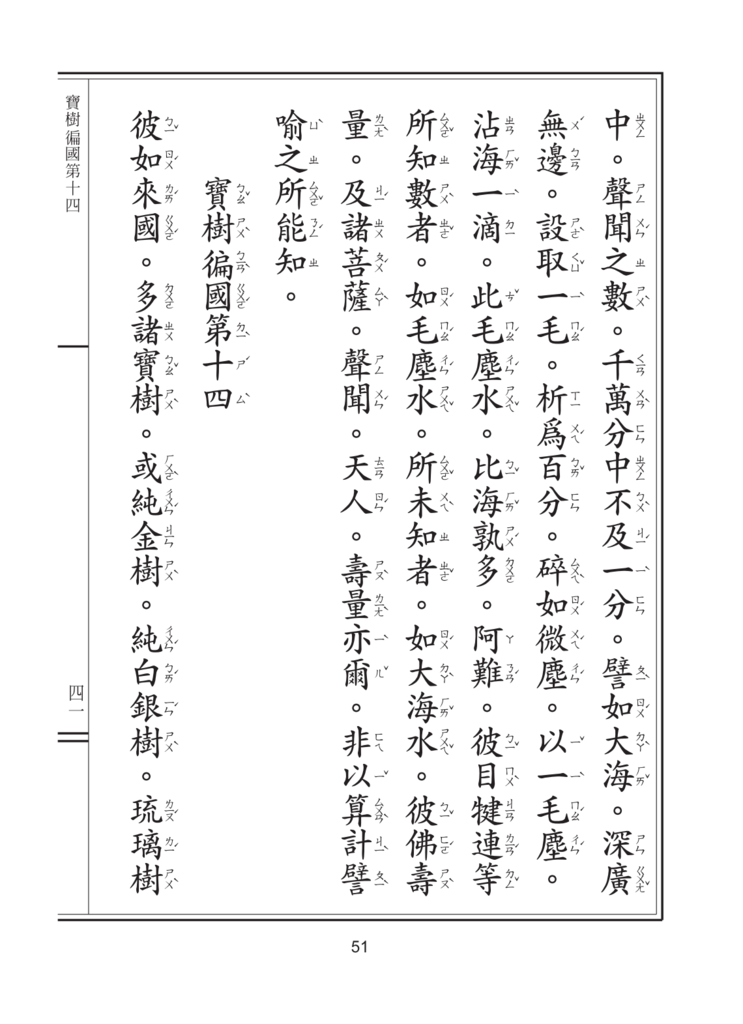 中。聲聞之數。千萬分中不及一分。譬如大海。深廣
無邊。設取一毛。析爲百分。碎如微塵。以一毛塵。
沾海一滴。此毛塵水。比海孰多。阿難。彼目犍連等
所知數者。如毛塵水。所未知者。如大海水。彼佛壽
量。及諸菩薩。聲聞。天人。壽量亦爾。非以算計譬
喻之所能知。
寶樹徧國第十四
彼如來國。多諸寶樹。或純金樹。純白銀樹。琉璃樹
寶樹徧國第十四
四一
51